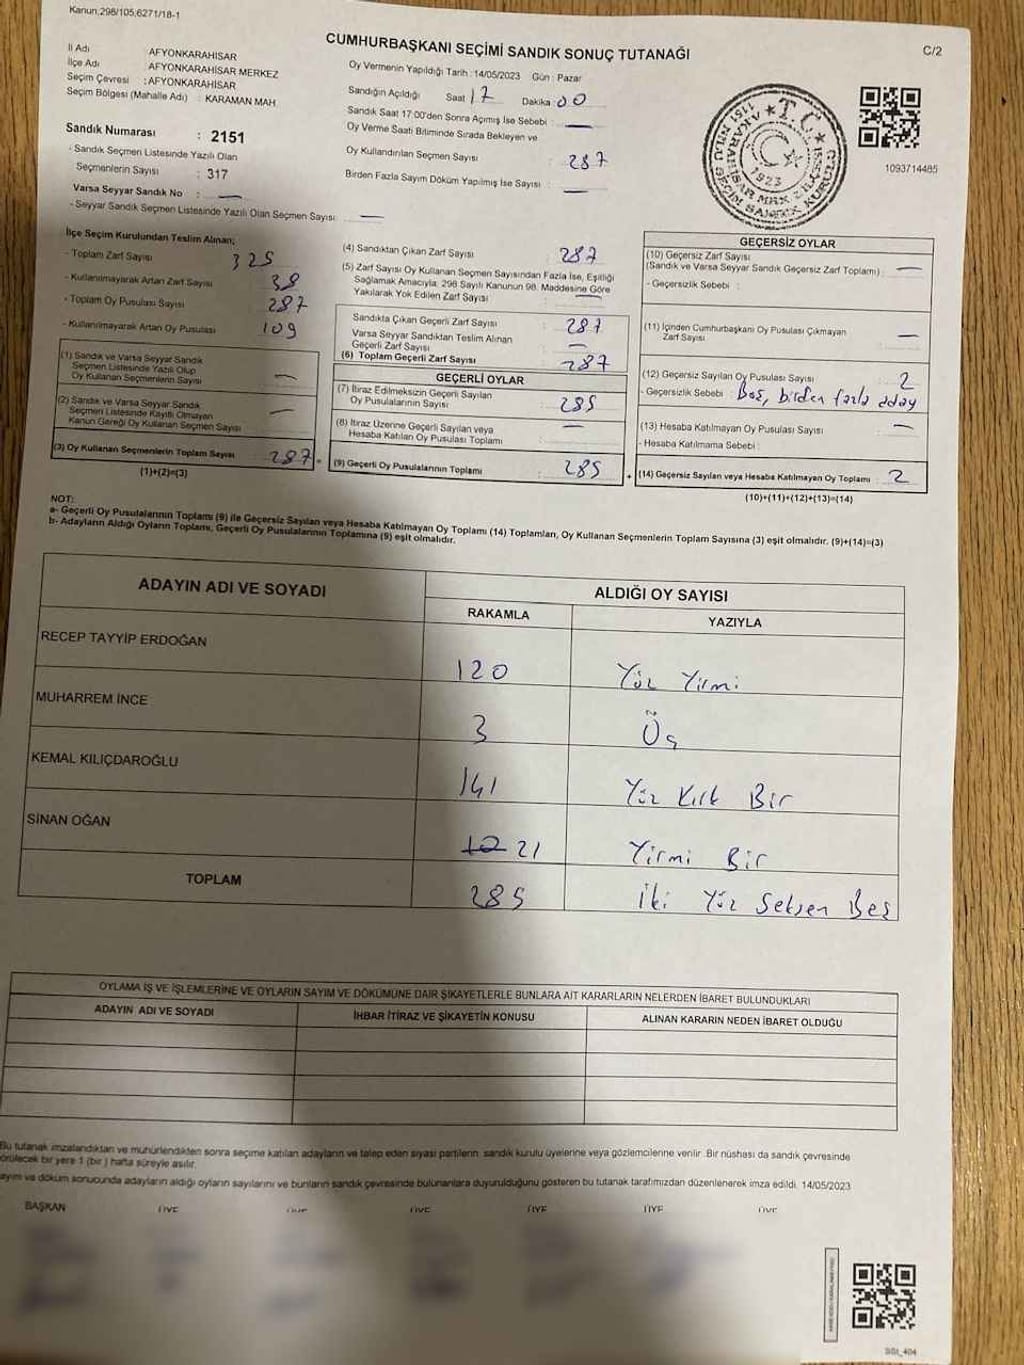 Kanun,298/105,6271/18-1
CUMHURBAŞKANI SEÇİMİ SANDIK SONUÇ TUTANAĞI
C/2
İl Adı AFYONKARAHİSAR
İlçe Adı AFYONKARAHİSAR MERKEZ
Seçim Çevresi : AFYONKARAHİSAR
Seçim Bölgesi (Mahalle Adı) : KARAMAN MAH.
Sandık Numarası : 2151
- Sandık Seçmen Listesinde Yazılı Olan
Seçmenlerin Sayısı : 317
Varsa Seyyar Sandık No : —
- Seyyar Sandık Seçmen Listesinde Yazılı Olan Seçmen Sayısı: —
Oy Vermenin Yapıldığı Tarih : 14/05/2023 Gün : Pazar
Sandığın Açıldığı Saat 17 Dakika 00
Sandık Saat 17:00'den Sonra Açımış İse Sebebi : —
Oy Verme Saati Bitiminde Sırada Bekleyen ve
Oy Kullandırılan Seçmen Sayısı : 287
Birden Fazla Sayım Döküm Yapılmış İse Sayısı : —
T.C.
1923
1093714485
İlçe Seçim Kurulundan Teslim Alınan;
- Toplam Zarf Sayısı 325
- Kullanılmayarak Artan Zarf Sayısı 38
- Toplam Oy Pusulası Sayısı 287
- Kullanılmayarak Artan Oy Pusulası 109
(1) Sandık ve Varsa Seyyar Sandık
Seçmen Listesinde Yazılı Olup
Oy Kullanan Seçmenlerin Sayısı —
(2) Sandık ve Varsa Seyyar Sandık
Seçmen Listesinde Kayıtlı Olmayan
Kanun Gereği Oy Kullanan Seçmen Sayısı —
(3) Oy Kullanan Seçmenlerin Toplam Sayısı 287
(1)+(2)=(3)
(4) Sandıktan Çıkan Zarf Sayısı 287
(5) Zarf Sayısı Oy Kullanan Seçmen Sayısından Fazla İse, Eşitliği
Sağlamak Amacıyla; 298 Sayılı Kanunun 98. Maddesine Göre
Yakılarak Yok Edilen Zarf Sayısı : —
Sandıkta Çıkan Geçerli Zarf Sayısı : 287
Varsa Seyyar Sandıktan Teslim Alınan
Geçerli Zarf Sayısı : —
(6) Toplam Geçerli Zarf Sayısı 287
GEÇERLİ OYLAR
(7) İtiraz Edilmeksizin Geçerli Sayılan
Oy Pusulalarının Sayısı : 285
(8) İtiraz Üzerine Geçerli Sayılan veya
Hesaba Katılan Oy Pusulası Toplamı —
(9) Geçerli Oy Pusulalarının Toplamı : 285
GEÇERSİZ OYLAR
(10) Geçersiz Zarf Sayısı
(Sandık ve Varsa Seyyar Sandık Geçersiz Zarf Toplamı) : —
- Geçersizlik Sebebi :
(11) İçinden Cumhurbaşkanı Oy Pusulası Çıkmayan
Zarf Sayısı —
(12) Geçersiz Sayılan Oy Pusulası Sayısı : 2
- Geçersizlik Sebebi : Boş, birden fazla aday
(13) Hesaba Katılmayan Oy Pusulası Sayısı : —
- Hesaba Katılmama Sebebi :
(14) Geçersiz Sayılan veya Hesaba Katılmayan Oy Toplamı : 2
(10)+(11)+(12)+(13)=(14)
NOT:
a- Geçerli Oy Pusulalarının Toplamı (9) ile Geçersiz Sayılan veya Hesaba Katılmayan Oy Toplamı (14) Toplamları, Oy Kullanan Seçmenlerin Toplam Sayısına (3) eşit olmalıdır. (9)+(14)=(3)
b- Adayların Aldığı Oyların Toplamı, Geçerli Oy Pusulalarının Toplamına (9) eşit olmalıdır.
ADAYIN ADI VE SOYADI ALDIĞI OY SAYISI
RAKAMLA YAZIYLA
RECEP TAYYİP ERDOĞAN 120 Yüz Yirmi
MUHARREM İNCE 3 Üç
KEMAL KILIÇDAROĞLU 141 Yüz Kırk Bir
SİNAN OĞAN 12 21 Yirmi Bir
TOPLAM 285 İki Yüz Seksen Beş
OYLAMA İŞ VE İŞLEMLERİNE VE OYLARIN SAYIM VE DÖKÜMÜNE DAİR ŞİKAYETLERLE BUNLARA AİT KARARLARIN NELERDEN İBARET BULUNDUKLARI
ADAYIN ADI VE SOYADI İHBAR İTİRAZ VE ŞİKAYETİN KONUSU ALINAN KARARIN NEDEN İBARET OLDUĞU
Bu tutanak imzalandıktan ve mühürlendikten sonra seçime katılan adayların ve talep eden siyasi partilerin sandık kurulu üyelerine veya gözlemcilerine verilir. Bir nüshası da sandık çevresinde
görülecek bir yere 1 (bir) hafta süreyle asılır.
ayım ve döküm sonucunda adayların aldığı oyların sayılarını ve bunların sandık çevresinde bulunanlara duyurulduğunu gösteren bu tutanak tarafımızdan düzenlenerek imza edildi. 14/05/2023
BAŞKAN ÜYE ÜYE ÜYE ÜYE ÜYE ÜYE